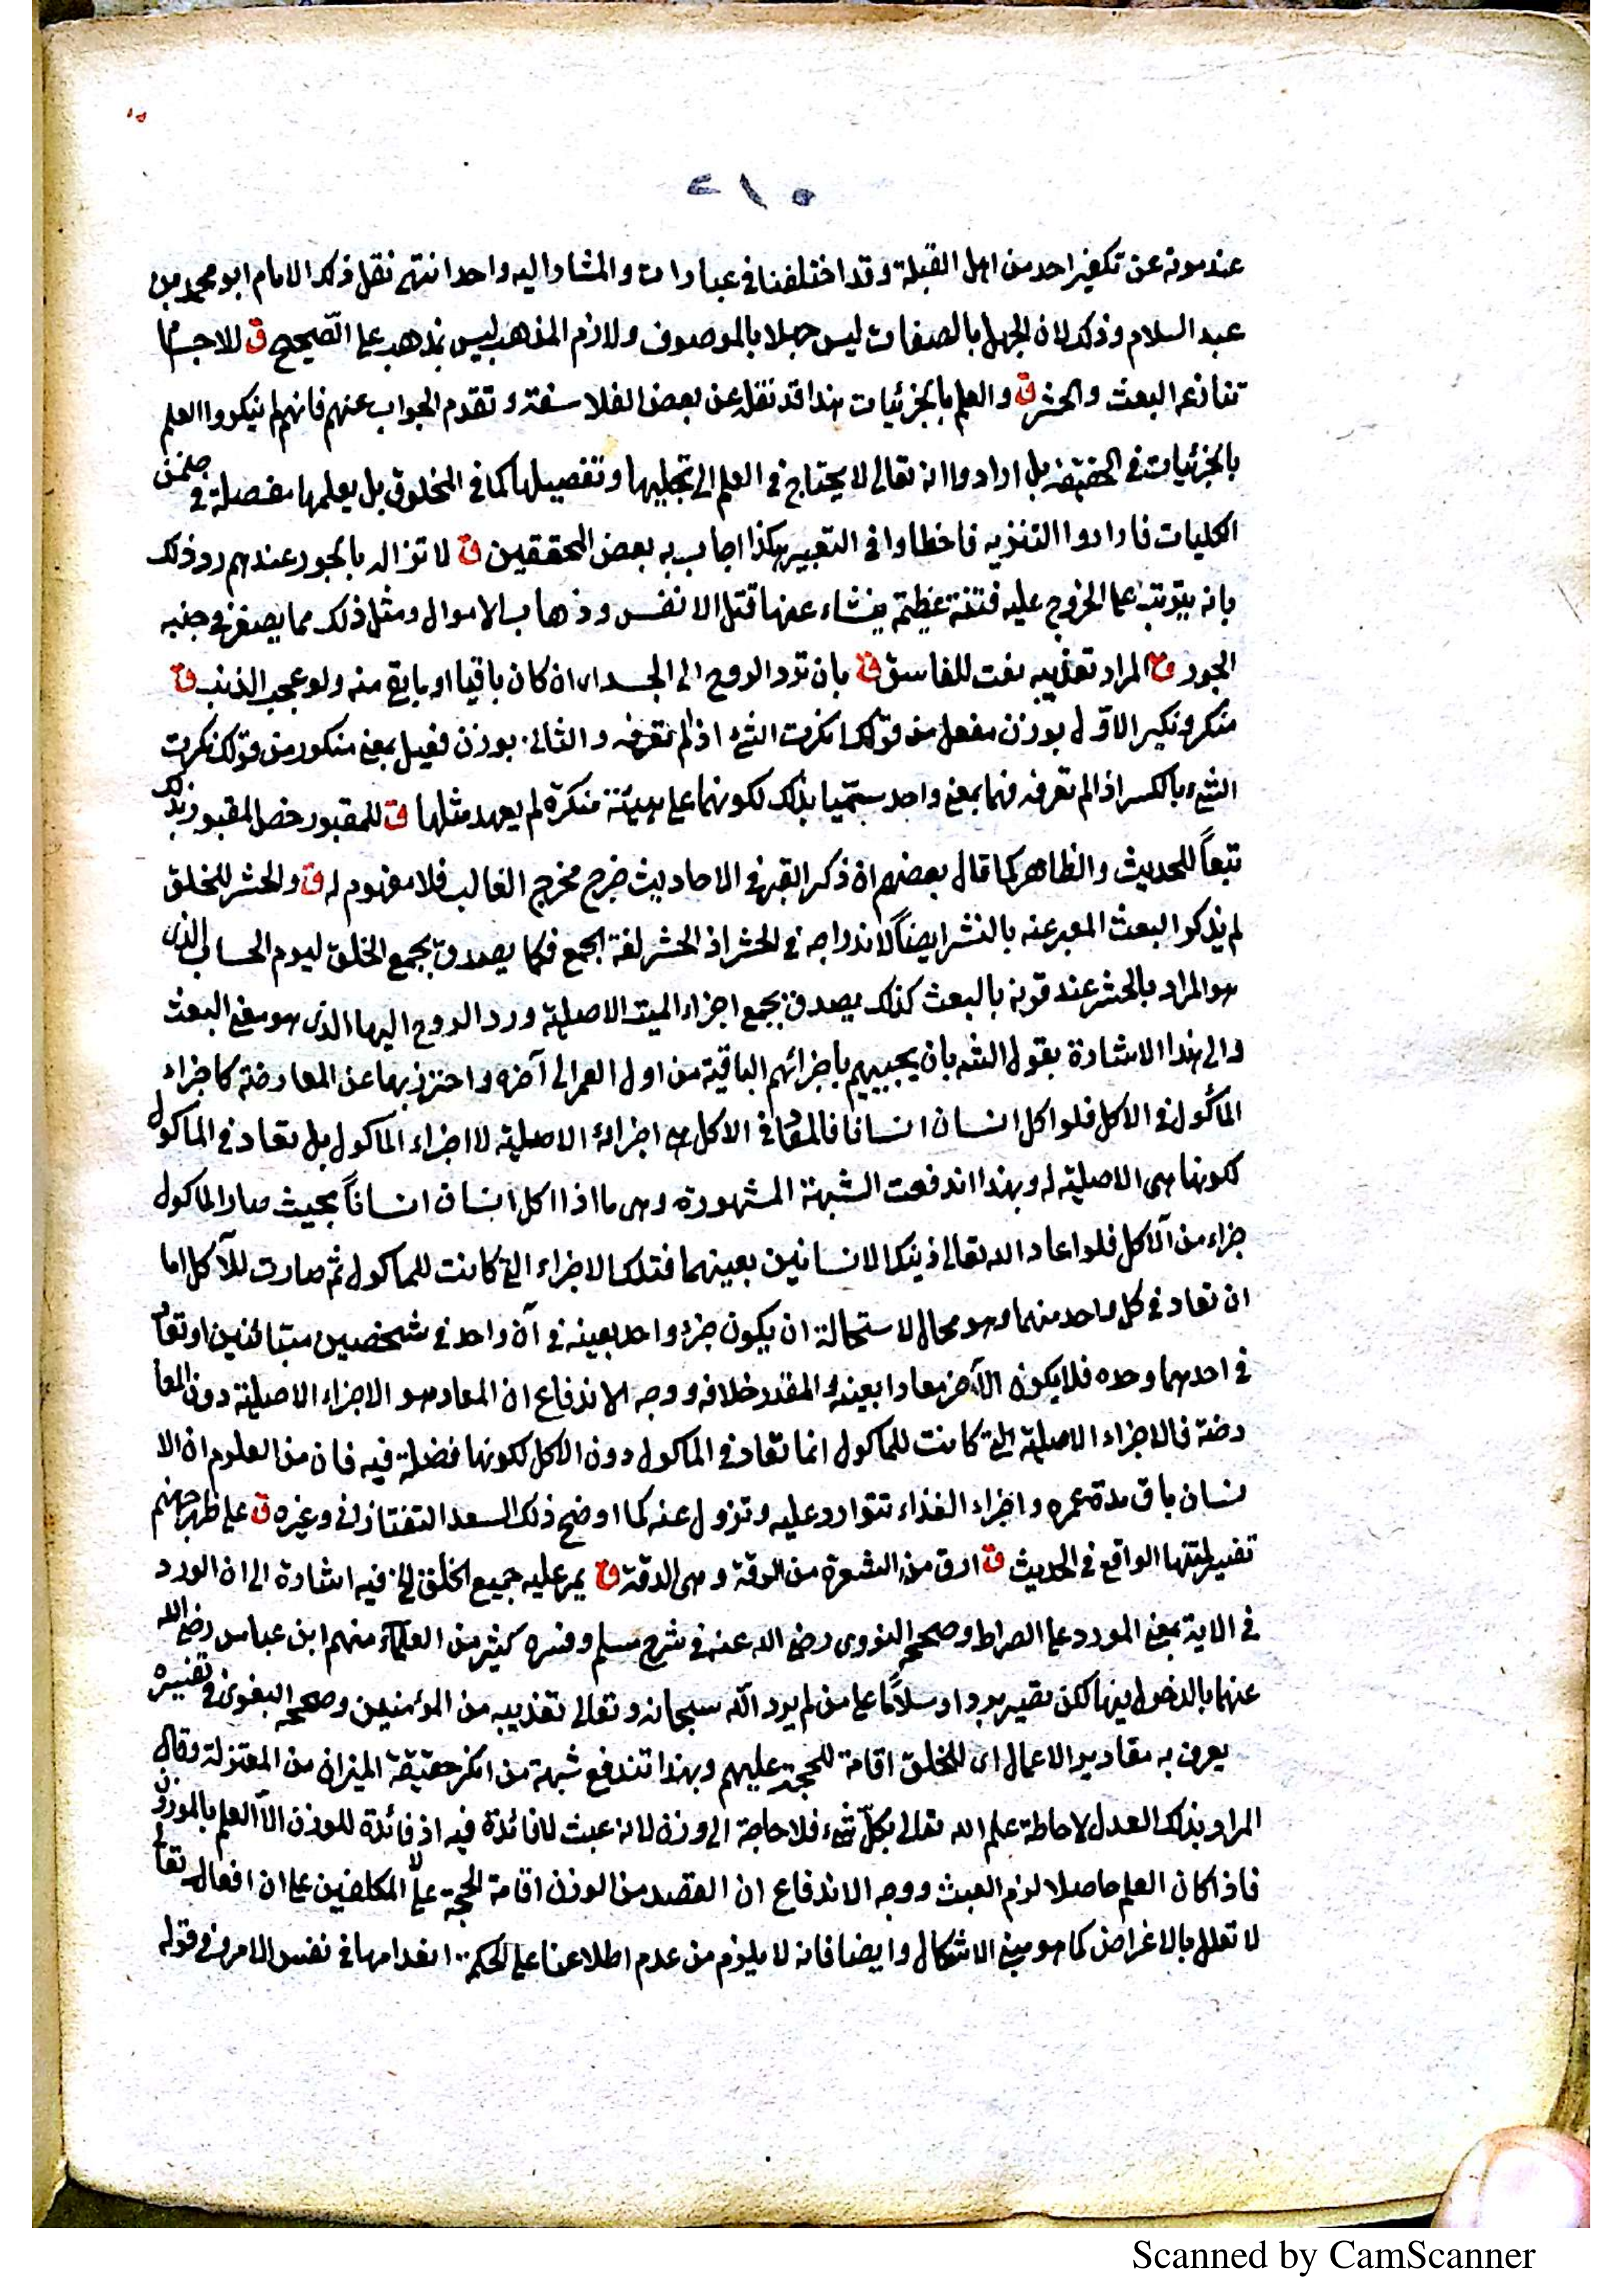 ٢١٥
عند موته عن تكفير احد من اهل القبلة وقد اختلفنا فى عبارات والمشار اليه واحد انتهى نقل ذلك الامام ابو محمد بن
عبد السلام وذلك لان الجهل بالصفات ليس جهلا بالموصوف ولازم المذهب ليس بمذهب على الصحيح ق للاجسام
تنازعه البعث والحشر ق والعلم بالجزئيات هذا قد نقل عن بعض الفلاسفة وتقدم الجواب عنهم فانهم لم ينكروا العلم
بالجزئيات فى الحقيقة بل ارادوا انه تعالى لا يحتاج فى العلم الى تجليها وتفصيلها كما فى المخلوق بل يعلمها مفصلة فى ضمن
الكليات فارادوا التنزيه فاخطاوا فى التعبير هكذا اجاب به بعض المحققين ق لا تزاله بالجور عندهم رد وذلك
بانه يترتب على الخروج عليه فتنة عظيمة ينشاء عنها قتل الانفس وذهاب الاموال ومثل ذلك مما يصغر فى جنبه
الجور ق المراد تعذيبه نعت للفاسق ق بان ترد الروح الى الجسد اى ان كان باقيا او ما بقى منه ولو عجب الذنب ق
منكر ونكير الاول بوزن مفعل من قولك انكرت الشئ اذا لم تعرفه والثانى بوزن فعيل بمعنى منكور من قولك نكرت
الشئ بالكسر اذا لم تعرفه فهما بمعنى واحد سميا بذلك لكونهما على هيئة منكرة لم يعهد مثلها ق للمقبور خص المقبور بذلك
تبعاً للحديث والظاهر كما قال بعضهم ان ذكر القبر فى الاحاديث خرج مخرج الغالب فلا مفهوم له ق والحشر للخلق
لم يذكر البعث المعبر عنه بالنشر ايضاً لاندراجه فى الحشر اذ الحشر لغة الجمع فكما يصدق بجمع الخلق ليوم الحساب الذى
هو المراد بالحشر عند قرنه بالبعث كذلك يصدق بجمع اجزاء الميت الاصلية ورد الروح اليها الذى هو معنى البعث
والى هذا الاشارة بقول الشه بان يحييهم باجزائهم الباقية من اول العمر الى آخره واحترز بها عن المعارضة كاجزاء
المأكول فى الاكل فلو اكل انسان انسانا فالمعاد فى الاكل هى اجزائه الاصلية لا اجزاء الماكول بل تعاد فى الماكول
لكونها هى الاصلية له وبهذا اندفعت الشبهة المشهورة وهى ما اذا اكل انسان انساناً بحيث صار الماكول
جزاء من الآكل فلو اعاد الله تعالى ذينك الانسانين بعينهما فتلك الاجزاء التى كانت للماكول ثم صارت للآكل اما
ان تعاد فى كل واحد منهما وهو محال لاستحالة ان يكون جزء واحد بعينه فى آن واحد فى شخصين متبائنين او تعاد
فى احدهما وحده فلا يكون الآخر معادا بعينه والمقدر خلافه ووجه الاندفاع ان المعاد هو الاجزاء الاصلية دون المعا
رضة فالاجزاء الاصلية التى كانت للماكول انما تعاد فى الماكول دون الاكل لكونها فضلة فيه فان من العلوم ان الا
نسان باق مدة عمره واجزاء الغذاء تتوارد عليه وتزول عنه كما اوضح ذلك السعد التفتازانى وغيره ق على ظهر جهنم
تفسير لمتنها الواقع فى الحديث ق ادق من الشعرة من الرقة وهى الدقة ق يمر عليه جميع الخلق الخ فيه اشارة الى ان الورد
فى الاية بمعنى المورد على الصراط وصححه النووى رضى الله عنه فى شرح مسلم وفسره كثير من العلماء منهم ابن عباس رضى الله
عنهما بالدخول فيها لكن تصير بردا وسلاماً على من لم يرد الله سبحانه وتعالى تعذيبه من المؤمنين وصححه البغوى فى تفسيره
يعرف به مقادير الاعمال اى للخلق اقامة للحجة عليهم وبهذا تندفع شبهة من انكر حقيقة الميزان من المعتزلة وقال
المراد بذلك العدل لاحاطة علم الله تعالى بكل شئ فلا حاجة الى وزنه لانه عبث لا فائدة فيه اذ فائدة للوزن الا العلم بالموزون
فاذا كان العلم حاصلا لزم العبث ووجه الاندفاع ان القصد من الوزن اقامة الحجة على المكلفين على ان افعاله تعالى
لا تعلل بالاغراض كما هو مبنى الاشكال وايضا فانه لا يلزم من عدم اطلاعنا على الحكمة انعدامها فى نفس الامر وفى قوله
Scanned by CamScanner